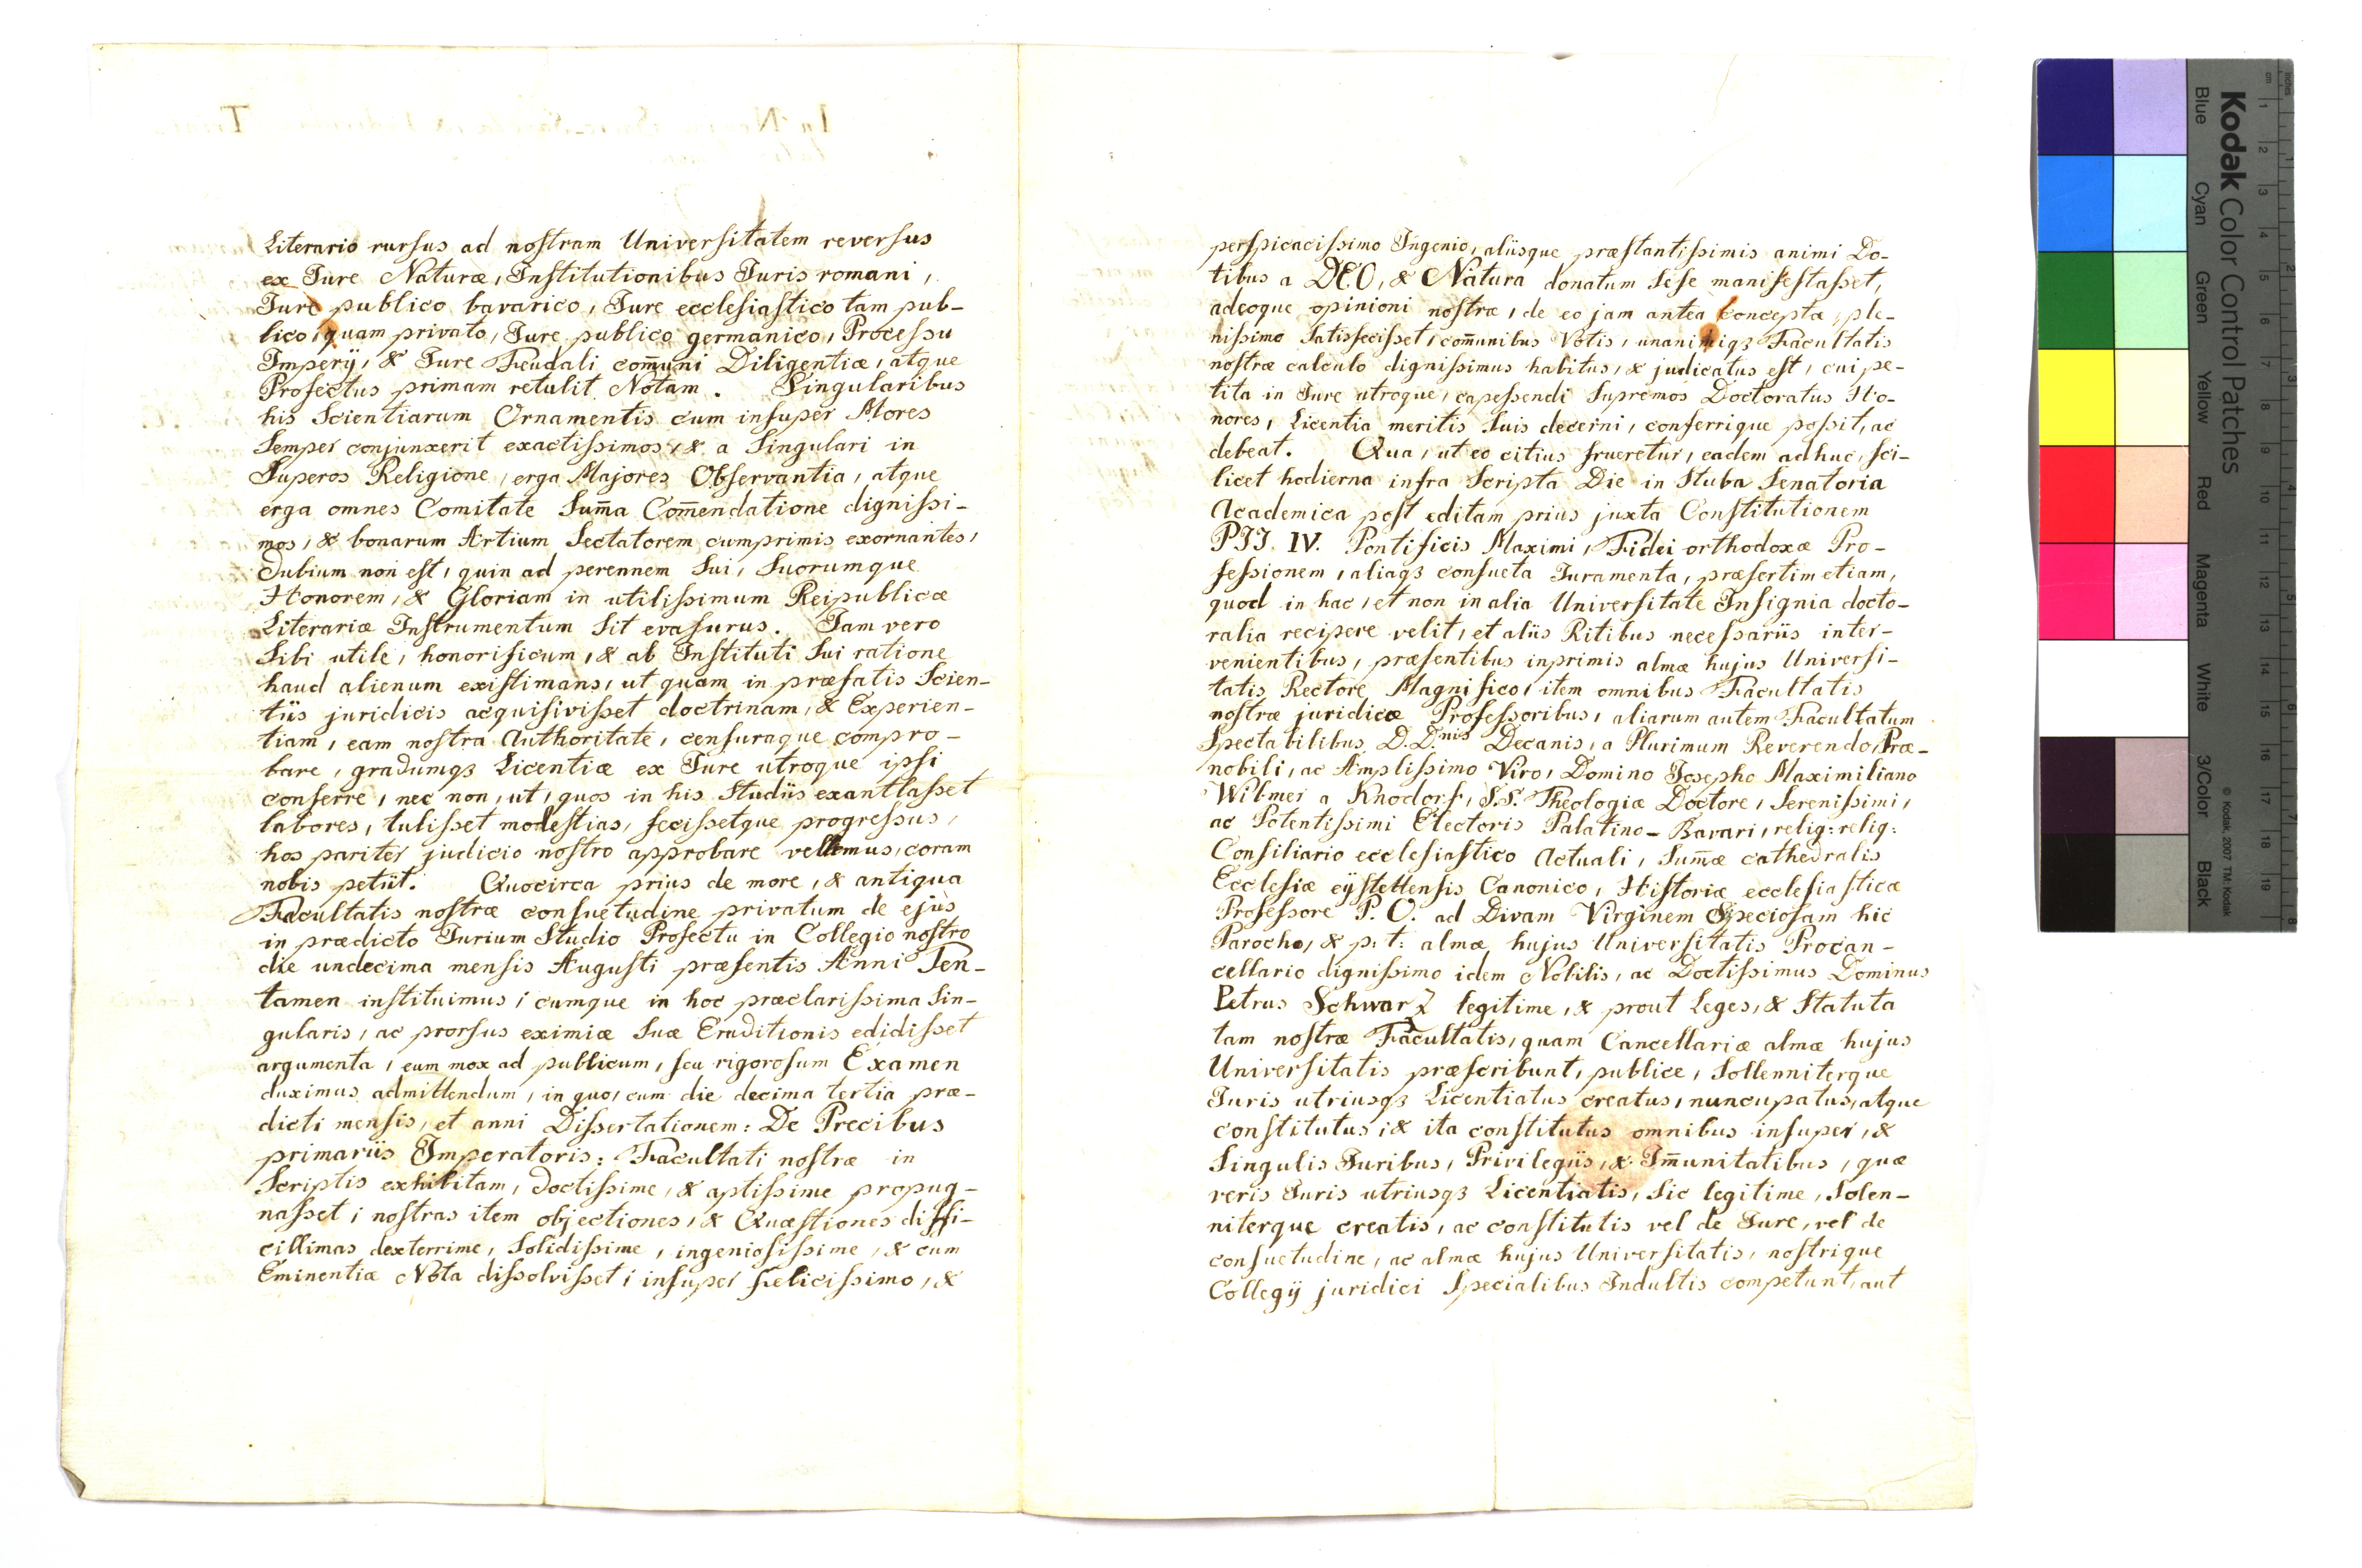 Literario rursus ad nostram Universitatem reversus
ex Jure Naturæ, Institutionibus Juris romani,
Jure publico bavarico, Jure ecclesiastico tam pub-
lico, quam privato, Jure publico germanico, Processu
Imperij, & Jure Feudali com̄uni Diligentiæ, atque
Profectus primam retulit Notam. Singularibus
his Scientiarum Ornamentis cum insuper Mores
Semper conjunxerit exactissimos, & a Singulari in
Superos Religione, erga Majores Observantia, atque
erga omnes Comitate Sum̄a Com̄endatione dignissi-
mos, & bonarum Artium Sectatorem cumprimis exornantes,
dubium non est, quin ad perennem Sui, Suorumque
Honorem, & Gloriam in utilissimum Reipublicæ
Literariæ Instrumentum Sit evasurus. Jam vero
Sibi utile, honorificum, & ab Instituti Sui ratione
haud alienum existimans, ut quam in præfatis Scien-
tiis juridicis acquisivisset doctrinam, & Experien-
tiam, eam nostra Authoritate, censuraque compro-
bare, gradumqꝫ Licentiæ ex Jure utroque ipsi
conferre, nec non, ut, quos in his Studiis exantlasset
labores, tulisset molestias, fecissetque progressus,
hos pariter judicio nostro approbare vellemus, coram
nobis petiit. Quocirca prius de more, & antiqua
Facultatis nostræ consuetudine privatum de ejus
in prædicto Jurium Studio Profectu in Collegio nostro
die undecima mensis Augusti præsentis Anni Ten-
tamen instituimus; cumque in hoc præclarissima Sin-
gularis, ac prorsus eximiæ Suæ Eruditionis edidisset
argumenta, eum mox ad publicum, seu rigorosum Examen
duximus admittendum, in quo, cum die decima tertia præ-
dicti mensis, et anni Dissertationem: De Precibus
primariis Imperatoris: Facultati nostræ in
Scriptis exhibitam, doctissime, & aptissime propug-
nasset; nostras item objectiones, & Quæstiones diffi-
cillimas dexterrime, Solidissime, ingeniosissime, & cum
Eminentiæ Nota dissolvisset; insuper felicissimo, &
perspicacissimo Ingenio, aliisque præstantissimis animi Do-
tibus a DEO, & Natura donatum Sese manifestasset,
adeoque opinioni nostræ, de eo jam antea conceptæ, ple-
nissime Satisfecisset, com̄unibus Votis, unanimiqꝫ Facultatis
nostræ calculo dignissimus habitus, & judicatus est, cui pe-
tita in Jure utroque, capessendi Supremos Doctoratus Ho-
nores, Licentia meritis Suis decerni, conferrique possit, ac
debeat. Qua, ut eo citius frueretur, eadem adhuc, sci-
licet hodierna infra Scripta Die in Stuba Senatoria
Academica post editam prius juxta Constitutionem
PII IV. Pontificis Maximi, Fidei orthodoxæ Pro-
fessionem, aliaqꝫ consueta Juramenta, præsertim etiam,
quod in hac, et non in alia Universitate Insignia docto-
ralia recipere velit, et aliis Ritibus necessariis inter-
venientibus, præsentibus inprimis almæ hujus Universi-
tatis Rectore Magnifico, item omnibus Facultatis
nostræ juridicæ Professoribus, aliarum autem Facultatum
Spectabilibus D.D.nis Decanis, a Plurimum Reverendo, Præ-
nobili, ac Amplissimo Viro, Domino Josepho Maximiliano
Wibmer a Knodorf, S.S. Theologiæ Doctore, Serenissimi,
ac Potentissimi Electoris Palatino-Bavari, relig: relig:
Consiliario ecclesiastico Actuali, Sum̄æ cathedralis
Ecclesiæ eÿstettensis Canonico, Historiæ ecclesiasticæ
Professore P.O. ad Divam Virginem Speciosam hic
Parocho, & p: t: almæ hujus Universitatis Procan-
cellario dignissimo idem Nobilis, ac Doctissimus Dominus
Petrus Schwarz legitime, & prout Leges, & Statuta
tam nostræ Facultatis, quam Cancellariæ almæ hujus
Universitatis præscribunt, publice, Sollenniterque
Juris utriusqꝫ Licentiatus creatus, nuncupatus, atque
constitutus; & ita constitutus omnibus insuper, &
Singulis Juribus, Privilegiis, & Im̄unitatibus, quæ
veris Juris utriusqꝫ Licentiatis, Sic legitime, Solen-
niterque creatis, ac constitutis vel de Jure, vel de
consuetudine, ac almæ hujus Universitatis, nostrique
Collegij juridici Specialibus Indultis competunt, aut
Kodak Color Control Patches
Blue Cyan Green Yellow Red Magenta White 3/Color Black
© Kodak, 2007 TM: Kodak
inches
cm 1 2 3 4 5 6 7 8 9 10 11 12 13 14 15 16 17 18 19
1 2 3 4 5 6 7 8